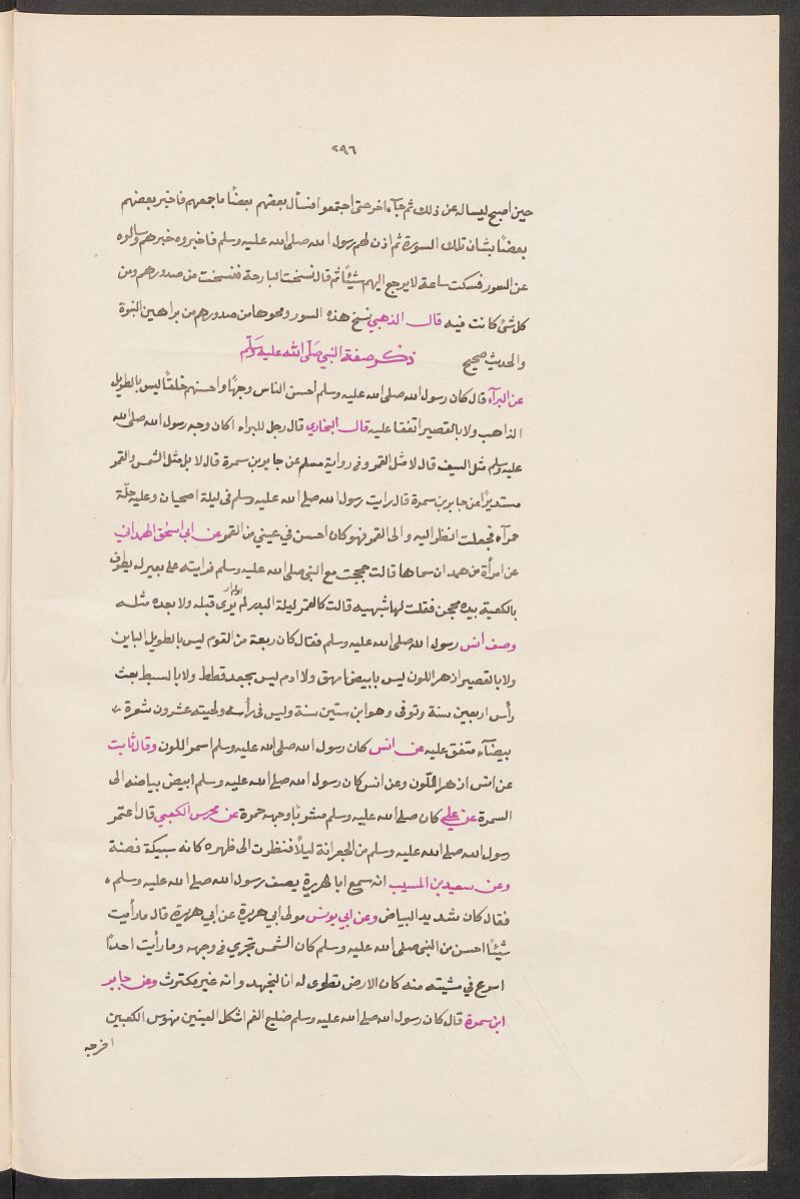 ٢٩٦
حين اصبح ليساله عن ذلك ثم جآء اخر حتى اجتمعوا فسأل بعضهم بعضًا ما جمعهم فاخبر بعضهم
بعضًا بشان تلك السورة ثم اذن لهم رسول الله صلى الله عليه وسلم فاخبروه خبرهم وسالوه
عن السور فسكت ساعة لا يرجع اليهم شيئًا ثم قال نسخت البارحة فنسخت من صدورهم ومن
كل شئ كانت فيه قال الذهبي نسخ هذه السور ومحوها من صدورهم من براهين النبوة
والحديث صحيح ذكر صفة النبي صَلّى الله عليه وسَلّم
عن البرآء قال كان رسول الله صلى الله عليه وسلم احسن الناس وجهًا واحسنهم خلقًا ليس بالطويل
الذاهب ولا بالقصير اتفقا عليه قال البخاري قال رجل للبراء اكان وجه رسول الله صلى الله
عليه وسلم مثل السيف قال لا مثل القمر وفى رواية مسلم عن جابر بن سمرة قال لا بل مثل الشمس والقمر
مستديرًا عن جابر بن سمرة قال رايت رسول الله صلى الله عليه وسلم فى ليلة اضحيان وعليه حلّة
حمرآء فجعلت انظر اليه والى القمر فهو كان احسن في عيني من القمر عن ابى اسحق الهمداني
عن امرأة من همدان سماها قالت حججت مع النبى صلى الله عليه وسلم فرايته على بعير له يطوف
بالكعبة بيده محجن فقلت لها شبهيه قالت كالقمر ليلة البدر لم يُرى قبله ولا بعده مثله
وصف انس رسول الله صلى الله عليه وسلم فقال كان ربعة من القوم ليس بالطويل الباين
ولا بالقصير ازهر اللون ليس بابيض امهق ولا ادم ليس بجعد قطط ولا بالسبط بعث
رأس اربعين سنة وتوفى وهو ابن ستين سنة وليس فى رأسه ولحيته عشرون شعرة
بيضآء متفق عليه عن انس كان رسول الله صلى الله عليه وسلم اسمر اللون وقال ثابت
عن انس ازهر اللّون وعن انس كان رسول الله صلى الله عليه وسلم ابيض بياضه الى
السمرة عن علي كان صلى الله عليه وسلم مشربًا وجهه حمرة عن محرس الكعبي قال اعتمر
رسول الله صلى الله عليه وسلم من الجعرانة ليلًا فنظرت الى ظهره كانه سبيكة فضة
وعن سعيد بن المسيب انه سمع ابا هريرة يصف رسول الله صلى الله عليه وسلم
فقال كان شديد البياض وعن ابي يونس مولى ابي هريرة عن ابي هريرة قال ما رأيت
شيئًا احسن من النبى صلى الله عليه وسلم كان الشمس تجري فى وجهه وما رأيت احدًا
اسرع في مشيته منه كان الارض تطوى له انا لنجهد وانه غير مكترث وعن جابر
ابن سمرة قال كان رسول الله صلى الله عليه وسلم ضليع الفم اشكل العينين منهوس الكعبين
اخرجه